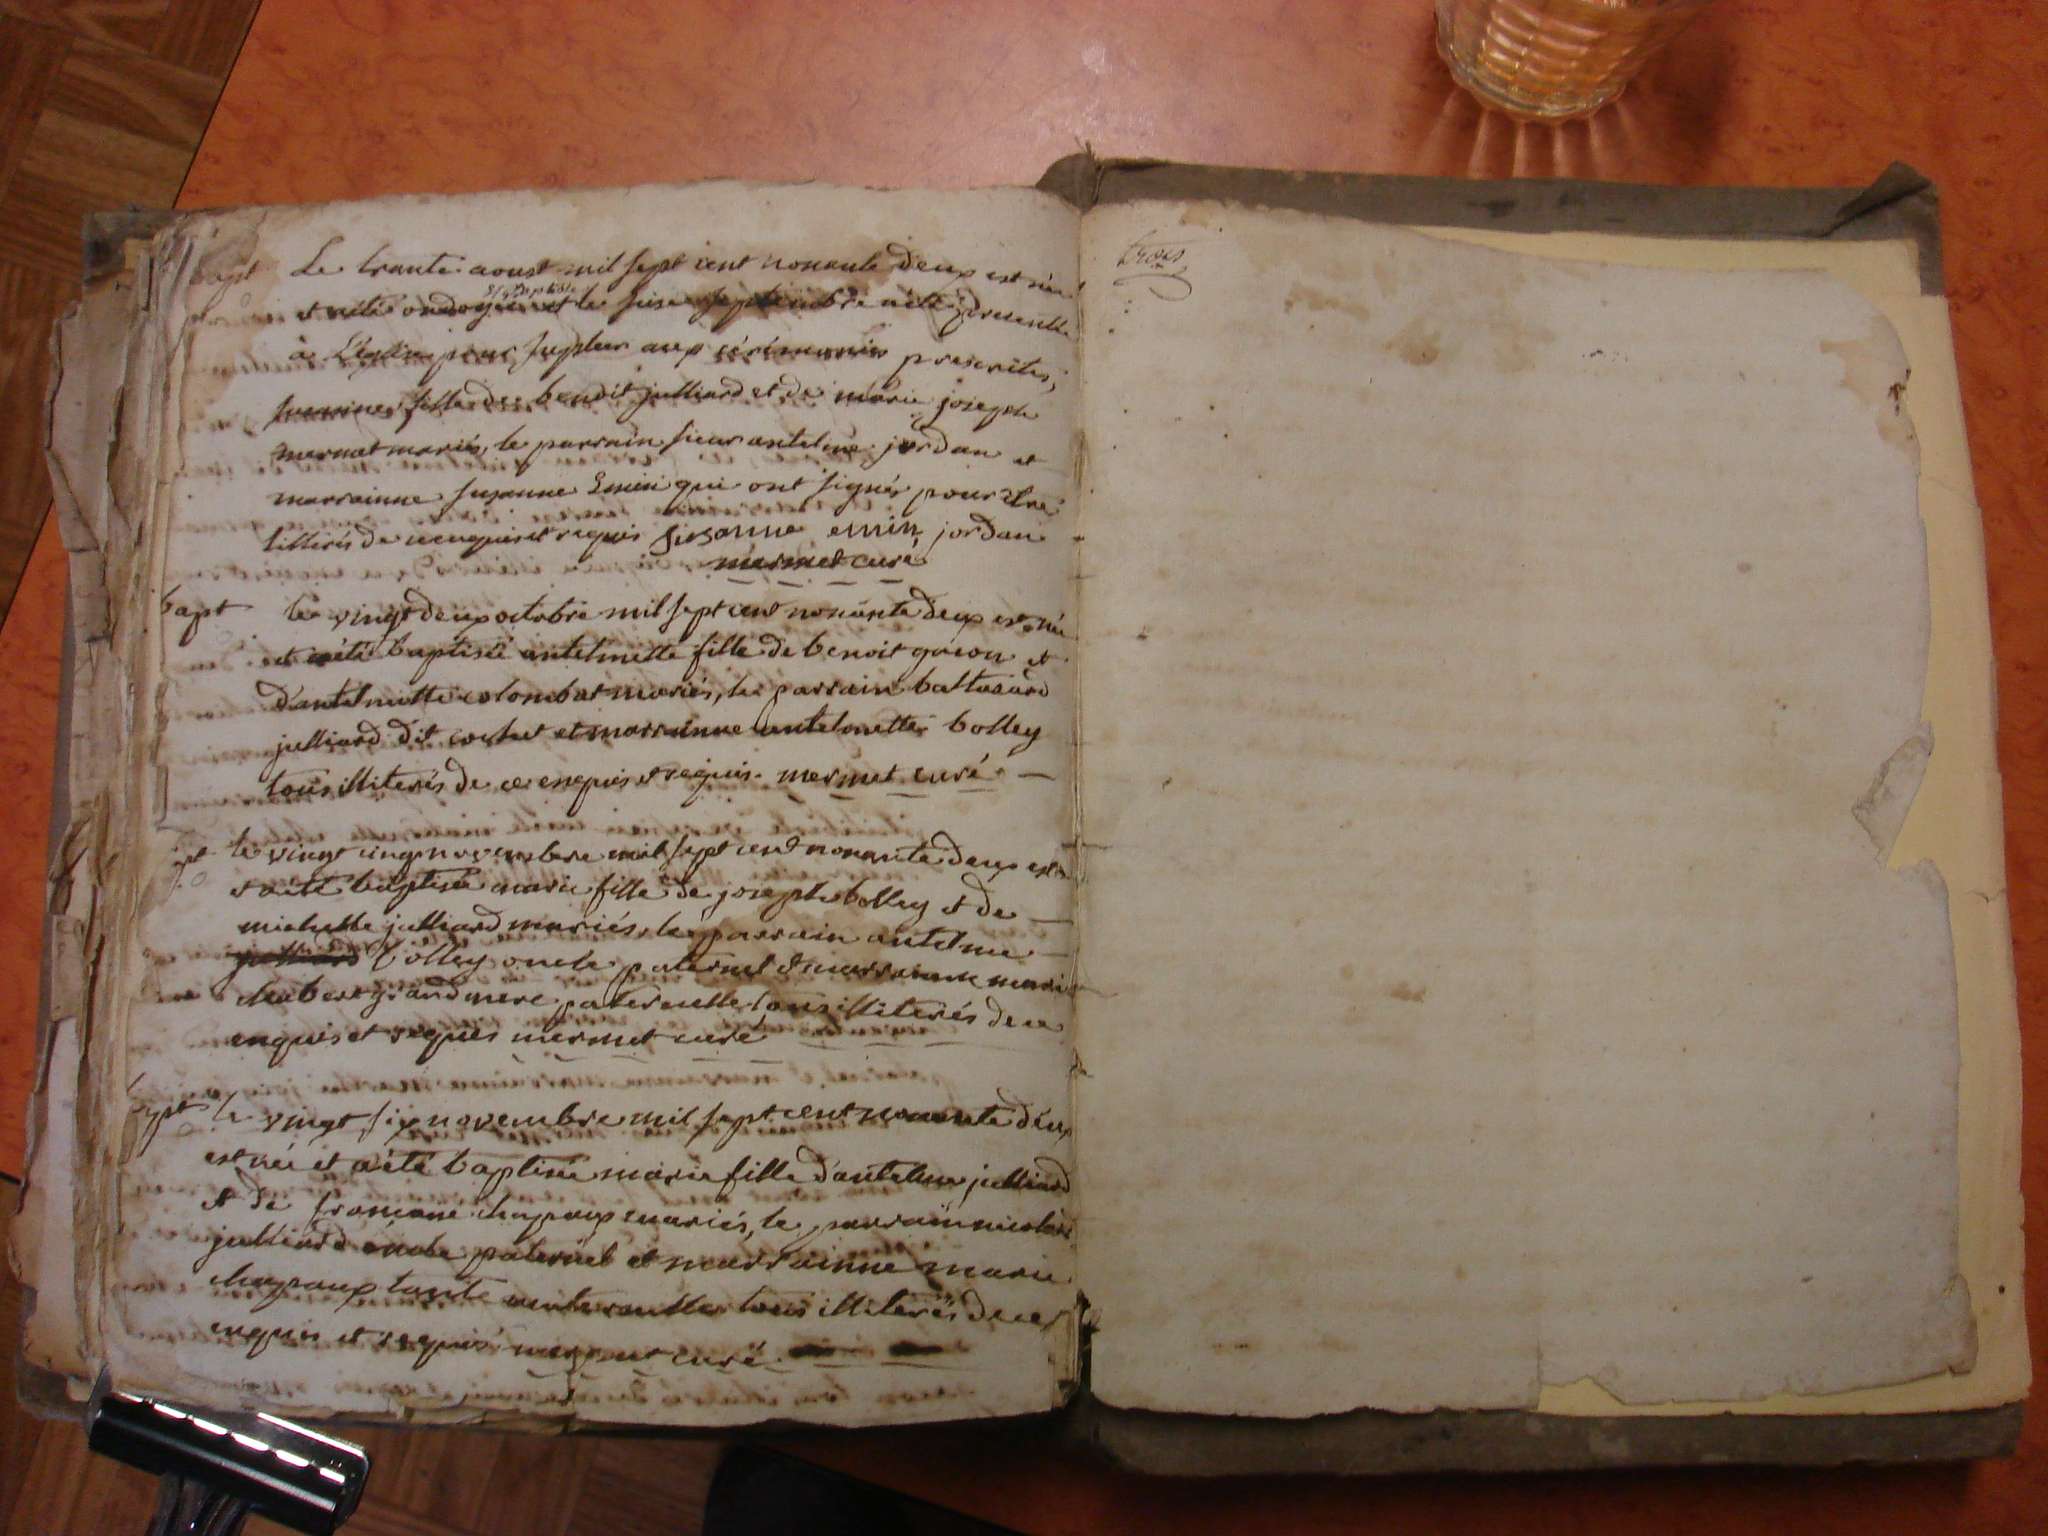 bapt Le trante aoust mil sept cent nonante deux est née
et a été ondoyée et le seise septembre a été présentée
à L'eglise pour supleer aux cérémonies prescrites,
fille de benoit julliard et de marie joseph
mermet mariés, le parrain sieur antelme jordan et
marrainne susanne Emin qui ont signés pour etre
litterés de ce enquis et requis Susanne emin jordan
mermet curé
bapt le vingt deux octobre mil sept cent nonante deux est née
et a été baptisée antelmette fille de benoit goion et
d'antelmette colombat mariés, le parrain baltasard
julliard dit cochet et marrainne antelmette bolley
tous illiterés de ce enquis et requis. mermet curé
bapt le vingt cinq novembre mil sept cent nonante deux est née
et a été baptisée marie fille de joseph bolley et de
michelle julliard mariés, le parrain antelme
julliard bolley oncle paternel et marrainne marie
grand mere paternelle tous illiterés de ce
enquis et requis mermet curé
bapt le vingt six novembre mil sept cent nonante deux
est née et a été baptisée marie fille d'antelme julliard
et de françoise chapoux mariés, le parrain nicolas
julliard oncle paternel et marrainne marie
chapoux tante maternelle tous illiterés de ce
enquis et requis mermet curé
trois